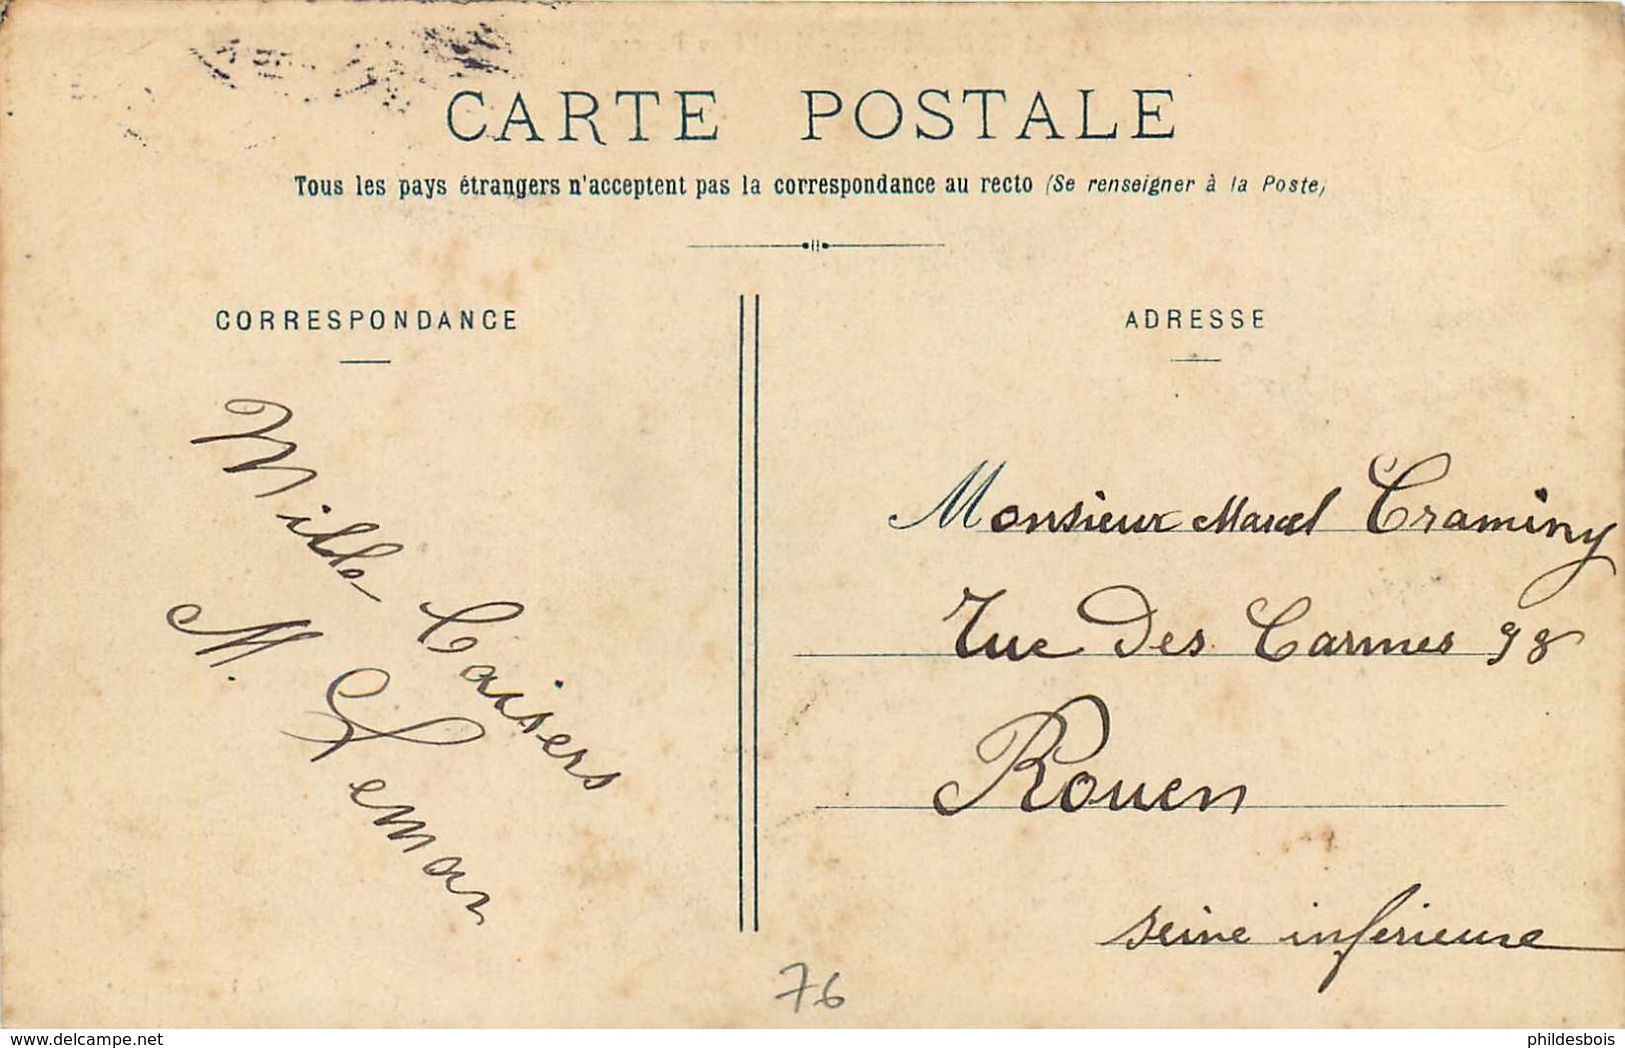 CARTE POSTALE
Tous les pays étrangers n'acceptent pas la correspondance au recto (Se renseigner à la Poste)
CORRESPONDANCE
Mille baisers
M. Leman
ADRESSE
Monsieur Marcel Craminy
rue Des Carmes 98
Rouen
seine inferieure
76
www.delcampe.net
phildesbois